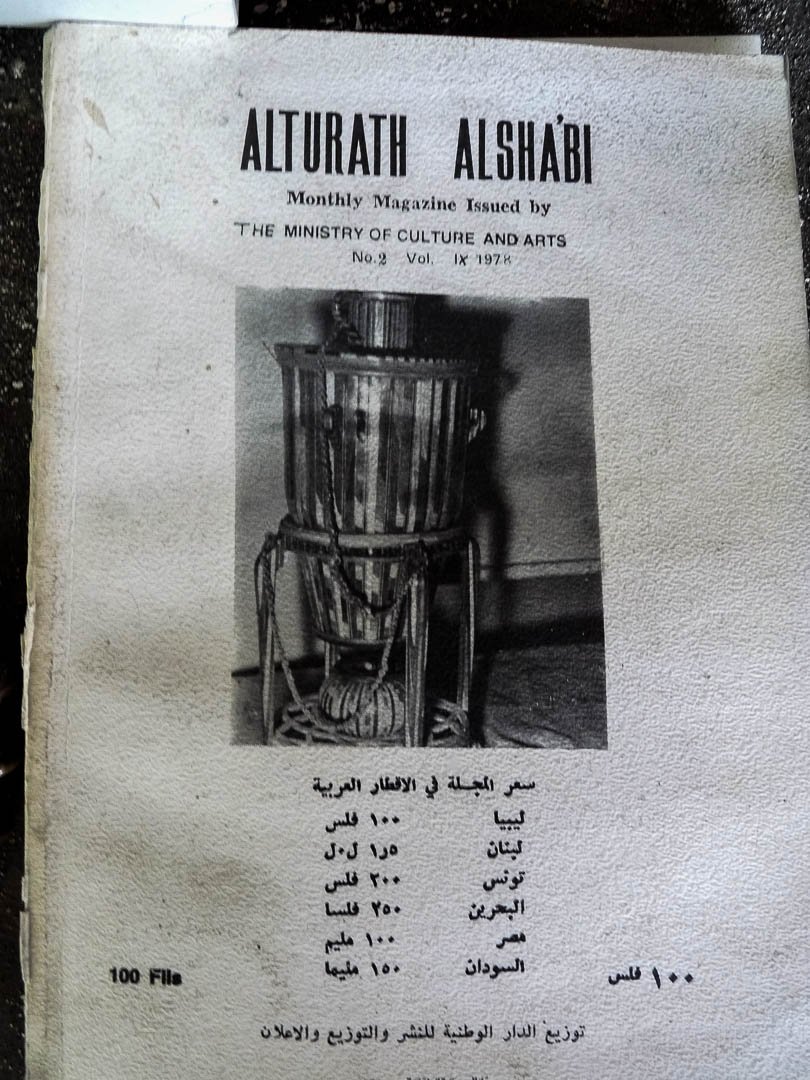 ALTURATH ALSHA'BI
Monthly Magazine Issued by
THE MINISTRY OF CULTURE AND ARTS
No.2 Vol. IX 1978
سعر المجلة في الاقطار العربية
ليبيا ١٠٠ فلس
لبنان ١٫٥ ل٠ل
تونس ٢٠٠ فلس
البحرين ٢٥٠ فلسا
مصر ١٠٠ مليم
السودان ١٥٠ مليما
١٠٠ فلس
100 Fils
توزيع الدار الوطنية للنشر والتوزيع والاعلان